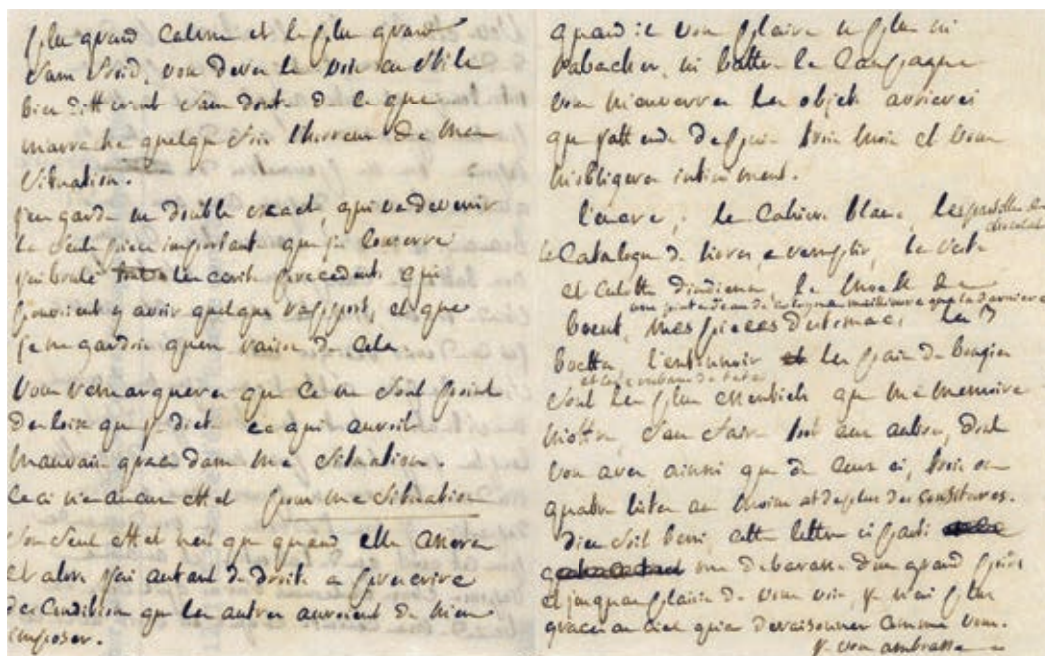 plus grand calme et le plus grand
sam froid, vous devez le voir au stile
bien different sans doute de ce que
m'arrache quelque fois l'horreur de ma
situation.
j'en garde un double exact, qui va devenir
la seule piece important que je conserve
j'ai brulé les ecrits precedents qui
pouvoient y avoir quelque rapport, et que
je ne gardois qu'en raison de cela
vous remarquerez que ce ne sont point
des loix que je dicte ce qui auroit
mauvais grace dans ma situation.
Ceci n'a aucun effet pour ma situation
son seul effet n'est que quand elle cessera
et alors j'ai autant de droits a prescrire
des conditions que les autres auroient de m'en
imposer.
quand il vous plaira ne plus ni
rabacher, ni battre la campagne
vous m'enverrez les objets arrierés
que j'attends depuis trois mois et vous
m'obligerez infiniment.
l'encre, le cahier blanc, les pastilles de
chocolat
le Catalogue de livres, a remplir, la veste
et culotte d'indienne la moelle de
une pinte d'eau de cologne meilleure que la derniere
boeuf, mes pieces d'estomac, les 3
boettes l'entonnoir et les pain de bougies
et les rubans de tete
sont les plus essentiels que ma memoire
m'offre, sans faire tort aux autres, dont
vous avez ainsi que de ceux ci, trois ou
quatre listes au moins et de plus des confitures.
dieu soit beni, cette lettre ci partie
me debarasse d'un grand poids
et jusqu'au plaisir de vous voir, je n'ai plus
graces au ciel qu'a deraisonner comme vous.
je vous ambrasse